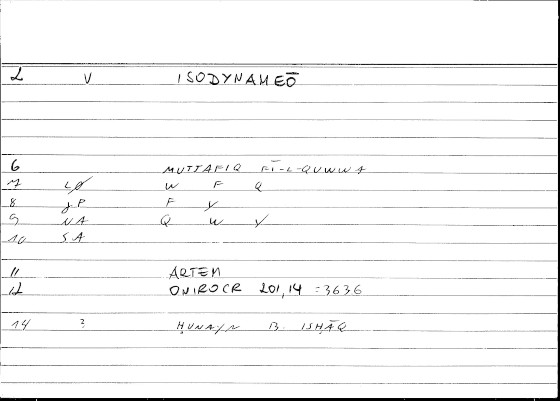 2 V ISODYNAMEŌ
6 MUTTAFIQ FĪ-L-QUWWA
7 LØ W F Q
8 JP F Y
9 NA Q W Y
10 SA
11 ARTEM
12 ONIROCR 201,14 =3636
14 ? ḤUNAYN B. ISḤĀQ